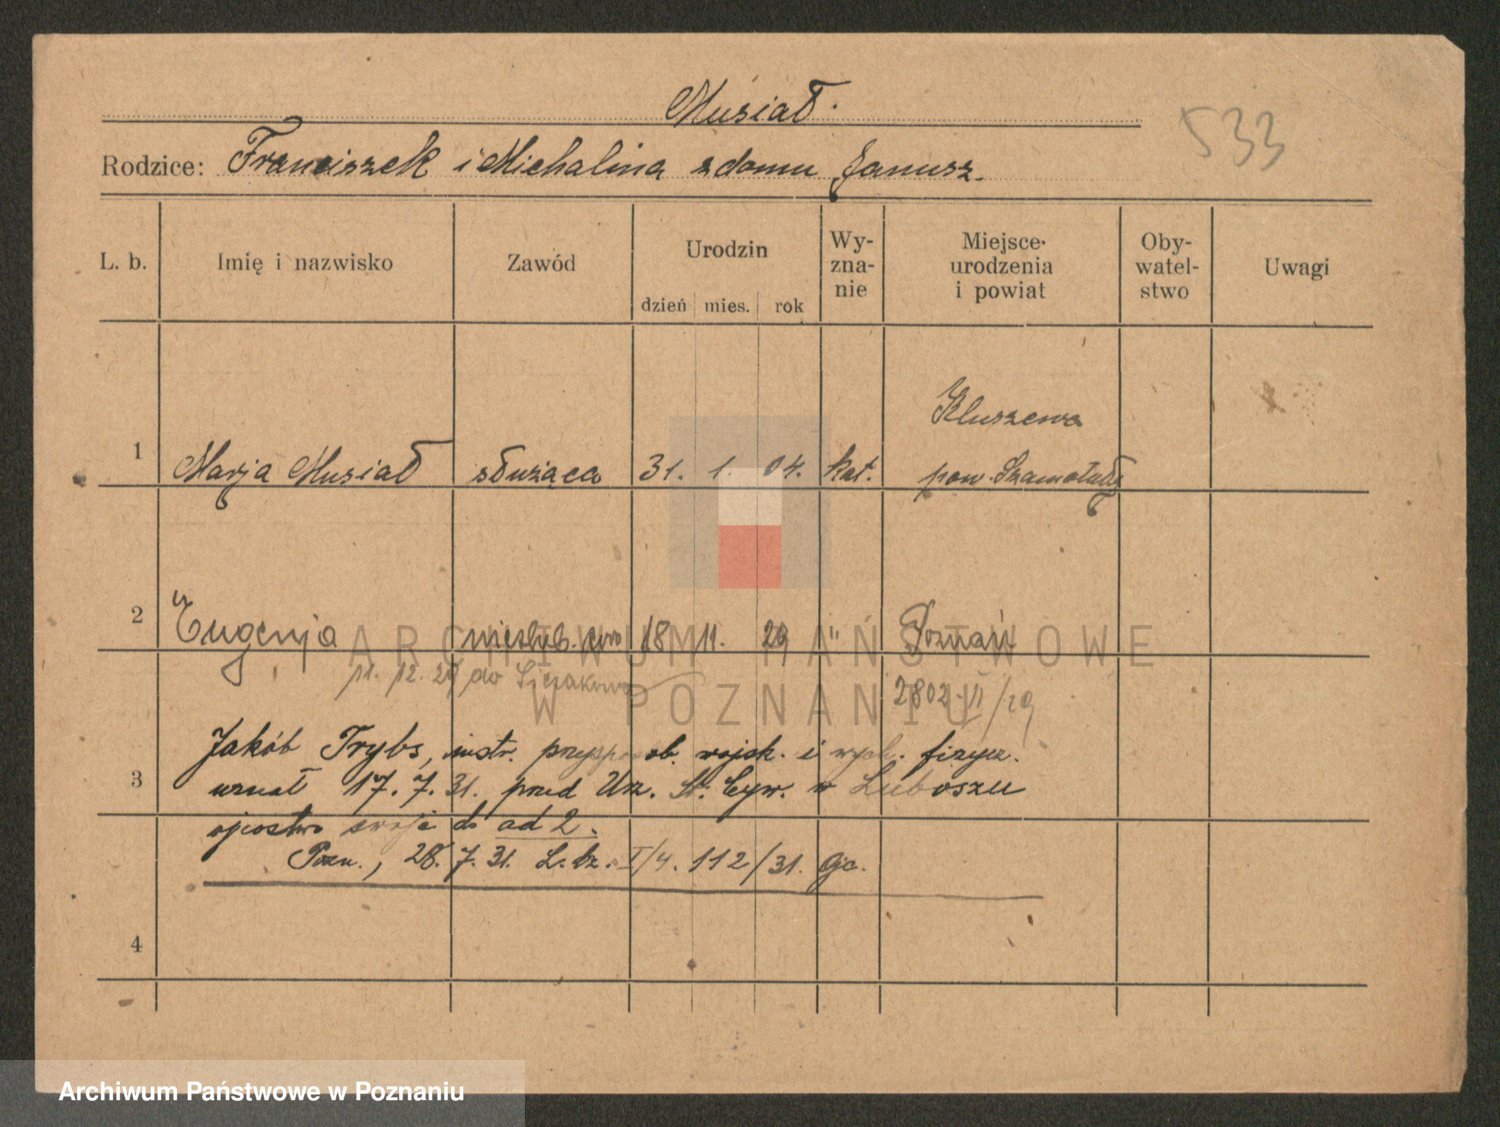 Musiał.
533
Rodzice: Franciszek i Michalina z domu Janusz.
L. b. Imię i nazwisko Zawód Urodzin Wy-zna-nie Miejsce urodzenia i powiat Oby-watel-stwo Uwagi
dzień mies. rok
Kluszewo
1 Marja Musiał służąca 31. 1. 04. kat. pow. Szamotuły
2 Eugenja nieślub. 18 11. 29 " Poznań
11. 12. 29 do Sierakowa
2802 II/29
Jakób Trybs, instr. przysposob. wojsk. i wych. fizycz.
3 uznał 17. 7. 31. przed Urz. St. Cyw. w Luboszu
ojcostwo swoje do ad 2.
Pozn., 28. 7. 31. L. dz. I/4. 112/31.
4
ARCHIWUM PAŃSTWOWE
W POZNANIU
Archiwum Państwowe w Poznaniu